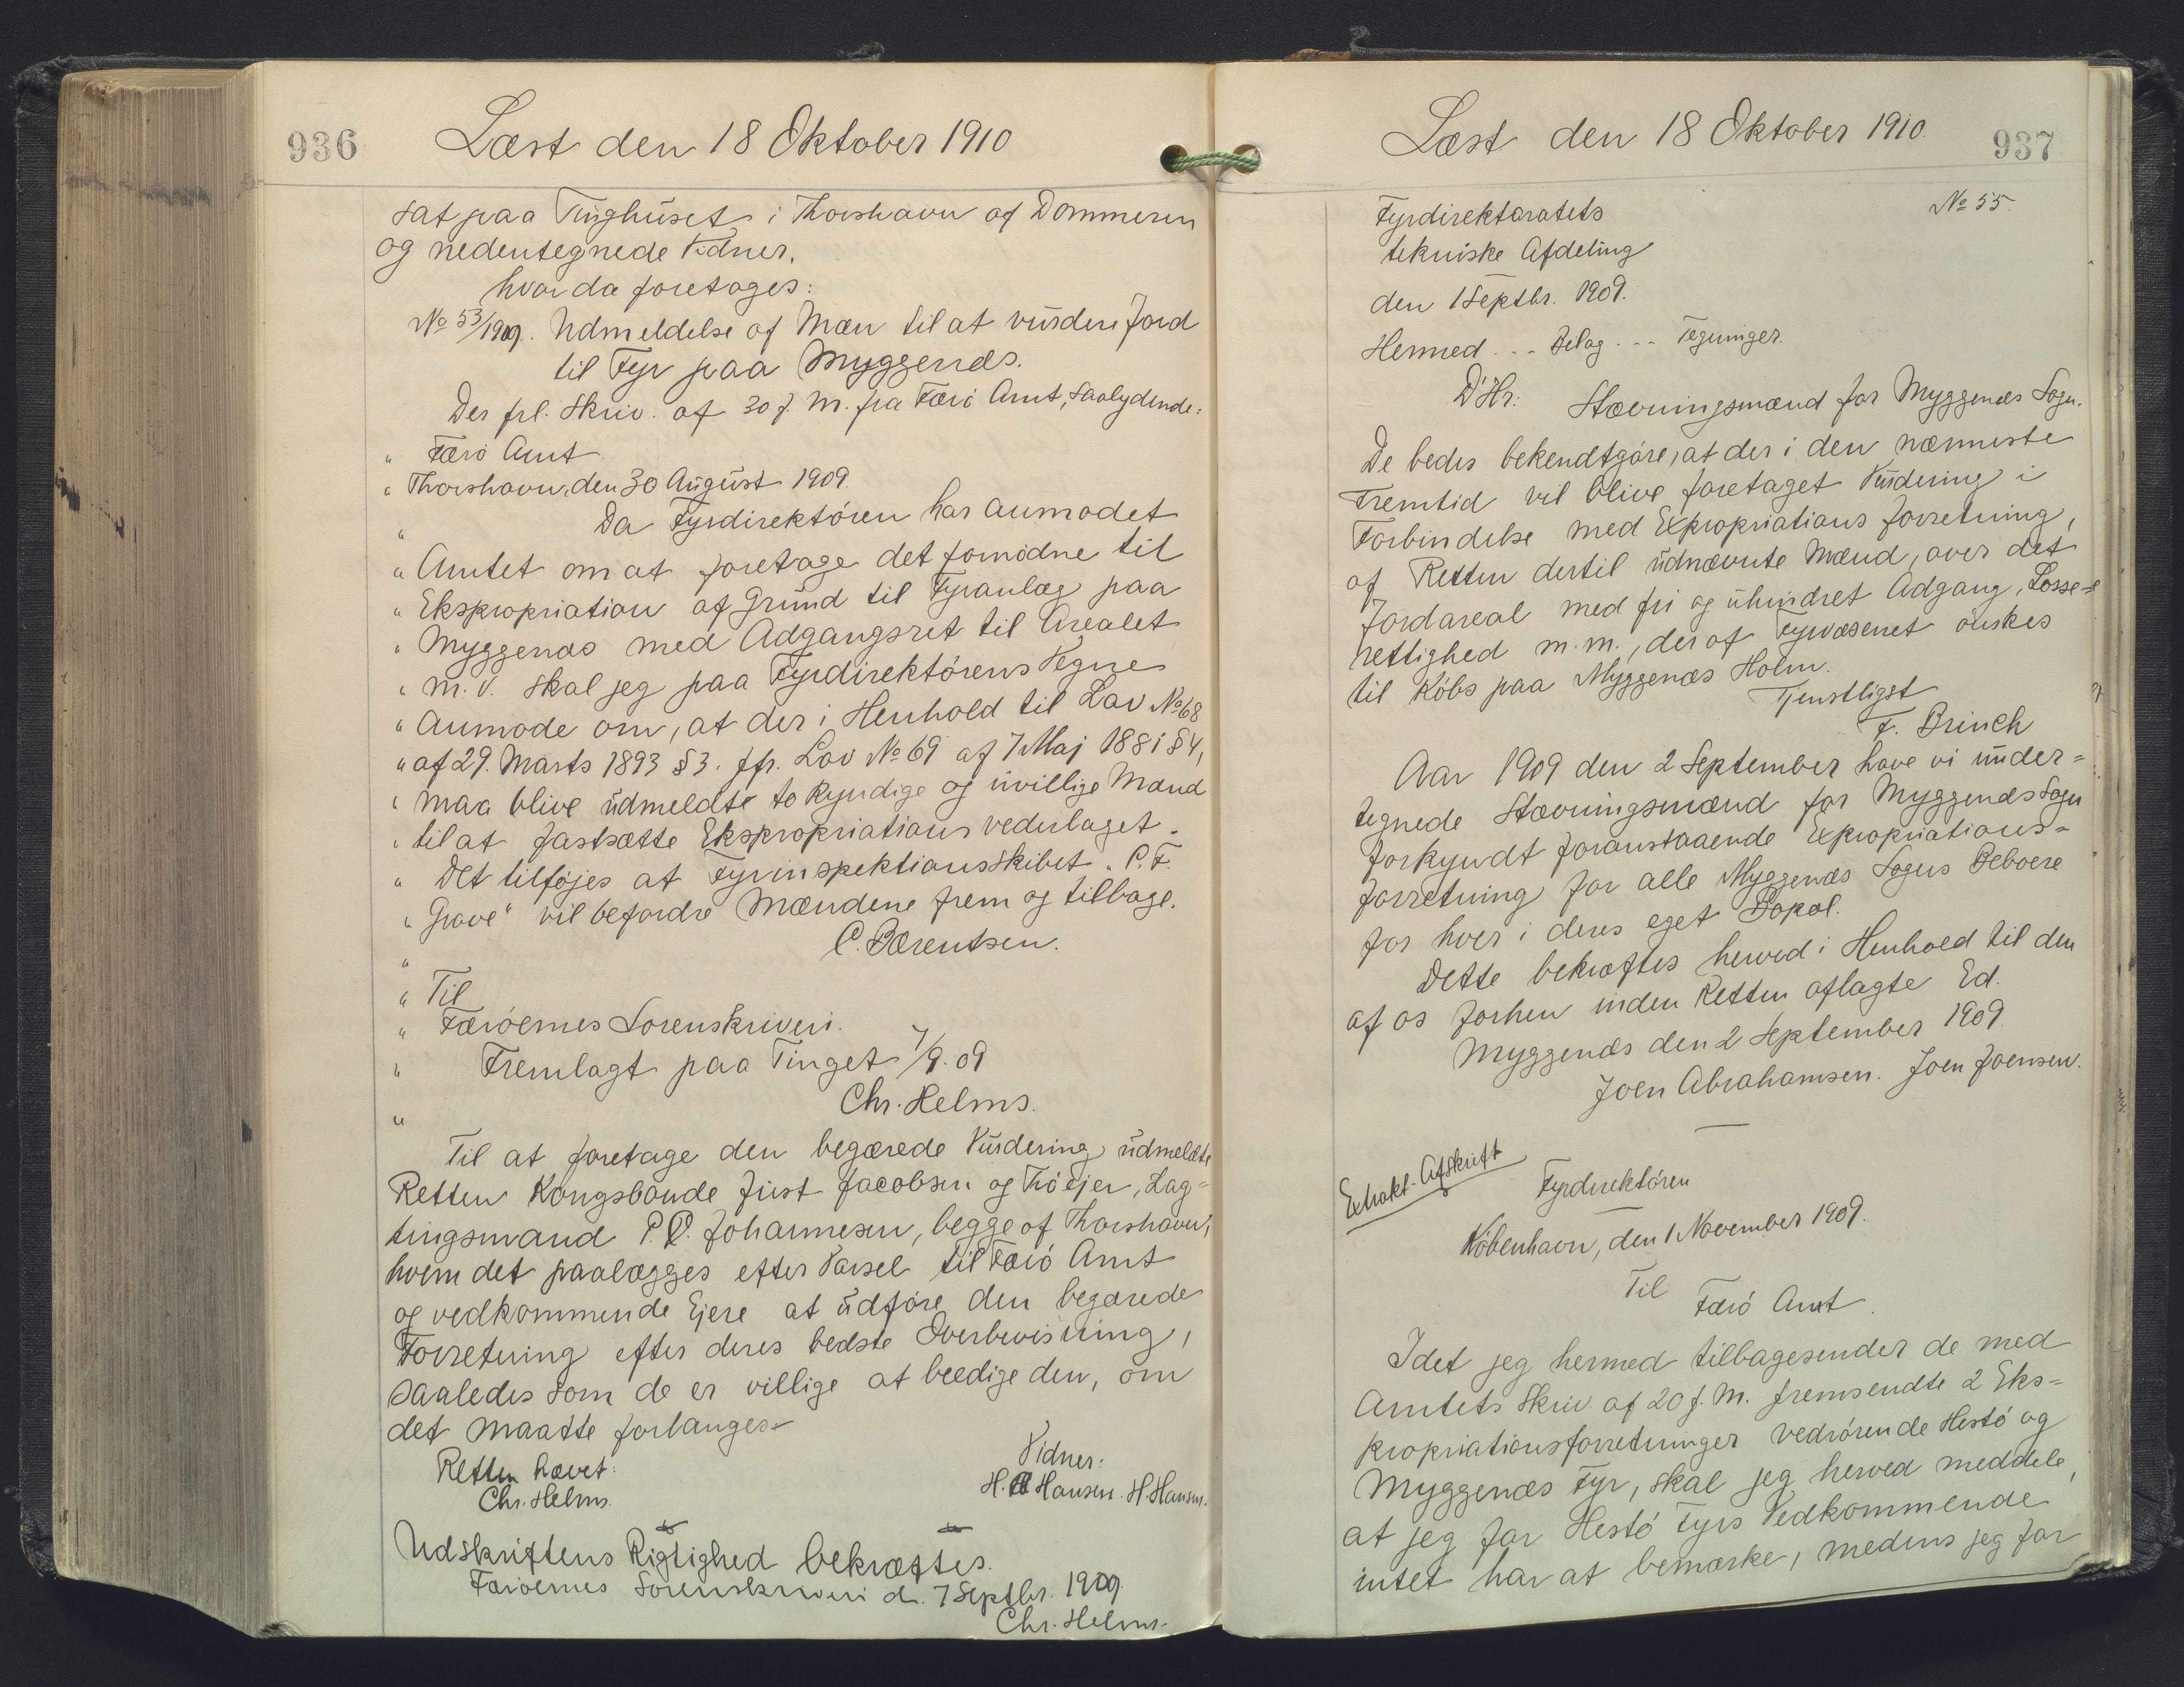 936
Læst den 18 Oktober 1910
sat paa Tinghuset i Thorshavn af Dommeren
og nedentegnede Vidner,
hvor da foretages:
No 53/1909. Udmeldelse af Mæn til at vurdere Jord
til Fyr paa Myggenæs.
Der frl. Skriv. af 30 f. M. fra Færö Amt, saalydende:
" Færö Amt
" Thorshavn, den 30 August 1909.
" Da Fyrdirektören har anmodet
" Amtet om at foretage det fornödne til
" Ekspropriation af Grund til Fyranlæg paa
" Myggenæs med Adgangsret til Arealet
" m. v. skal jeg paa Fyrdirektörens Vegne
" anmode om, at der i Henhold til Lov No 68
" af 29. Marts 1893 § 3. jfr. Lov No 69 af 7 Maj 1881 § 4,
" maa blive udmeldte to kyndige og uvillige Mænd
" til at fastsætte Ekspropriationsvederlaget.
" Det tilföjes at Fyrinspektionsskibet " P. F.
" Grove" vil befordre Mændene frem og tilbage.
" C. Bærentsen.
" Til
" Færöernes Sorenskriveri.
" Fremlagt paa Tinget 7/9. 09
" Chr. Helms.
Til at foretage den begærede Vurdering udmeldte
Retten Kongsbonde Just Jacobsen og Tröejer, Lag=
tingsmand P. O. Johannesen, begge af Thorshavn,
hvem det paalægges efter Varsel til Færö Amt
og vedkommende Ejere at udföre den begærede
Forretning efter deres bedste Overbevisning,
saaledes som de er villige at beedige den, om
det maatte forlanges=
Retten hævet.
Chr. Helms.
Vidner:
H. Hansen. H. Hansen.
Udskriftens Rigtighed bekræftes.
Færöernes Sorenskriveri d. 7 Septbr. 1909.
Chr. Helms.
Læst den 18 Oktober 1910.
937
No 55.
Fyrdirektoratets
tekniske Afdeling
den 1 Septbr. 1909.
Hermed ... Bilag ... Tegninger.
D'Hr: Stævningsmænd for Myggenæs Sogn.
De bedes bekendtgöre, at der i den nærmeste
Fremtid vil blive foretaget Vurdering i
Forbindelse med Expropriations forretning,
af Retten dertil udnævnte Mænd, over det
Jordareal med fri og uhindret Adgang, Losse=
rettighed m. m., der af Fyrvæsenet önskes
til Köbs paa Myggenæs Holm.
Tjenstligst
F. Brinch
Aar 1909 den 2 September have vi under=
tegnede Stævningsmænd for Myggenæs Sogn
forkyndt foranstaaende Expropriations=
forretning for alle Myggenæs Sogns Beboere
for hver i deres eget Bopæl.
Dette bekræftes herved i Henhold til den
af os forhen inden Retten aflagte Ed.
Myggenæs den 2 September 1909.
Joen Abrahamsen. Joen Joensen.
Extrakt-Afskrift
Fyrdirektören
Köbenhavn, den 1 November 1909.
Til
Færö Amt.
Idet jeg hermed tilbagesender de med
Amtets Skriv. af 20 f. M. fremsendte 2 Eks=
propriationsforretninger vedrörende Hestö og
Myggenæs Fyr, skal jeg herved meddele,
at jeg for Hestö Fyrs Vedkommende
intet har at bemærke, medens jeg for